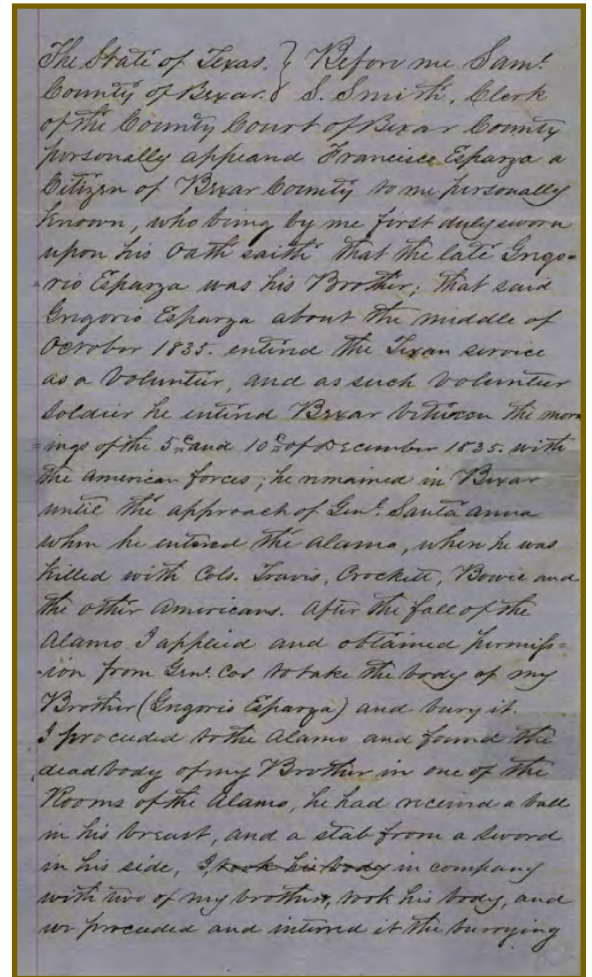 The State of Texas. } Before me Saml.
County of Bexar. } S. Smith, Clerk
of the County Court of Bexar County
personally appeared Francisco Esparza a
Citizen of Bexar County to me personally
known, who being by me first duly sworn
upon his Oath saith that the late Grego=
=rio Esparza was his Brother; that said
Gregorio Esparza about the middle of
October 1835. entered the Texan service
as a volunteer, and as such volunteer
soldier he entered Bexar between the morn
=ings of the 5th and 10th of December 1835. with
the American forces; he remained in Bexar
until the approach of Genl. Santa Anna
when he entered the Alamo, when he was
killed with Cols. Travis, Crockett, Bowie and
the other Americans. After the fall of the
Alamo I applied and obtained permiss=
=ion from Genl. Cos to take the body of my
Brother (Gregorio Esparza) and bury it.
I proceeded to the Alamo and found the
dead body of my Brother in one of the
Rooms of the Alamo, he had received a ball
in his breast, and a stab from a sword
in his side, I, took his body in company
with two of my brothers, took his body, and
we proceeded and interred it the burrying